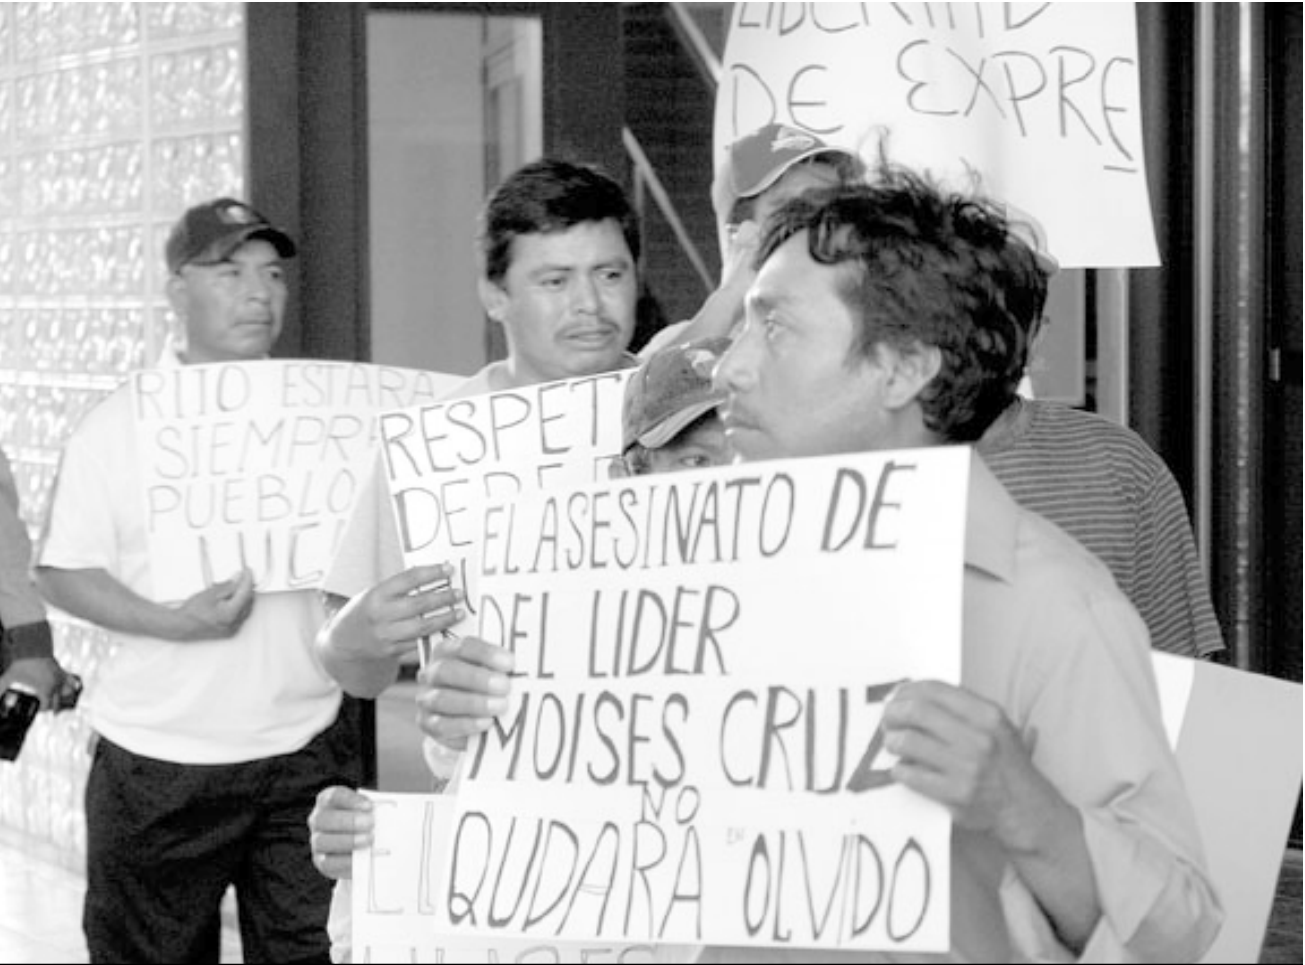 LIBERTAD
DE EXPRE
RITO ESTARA
SIEMPRE
PUEBLO
LUC
RESPET
DE
EL ASESINATO DE
DEL LIDER
MOISES CRUZ
NO
QUDARA EN OLVIDO
EL